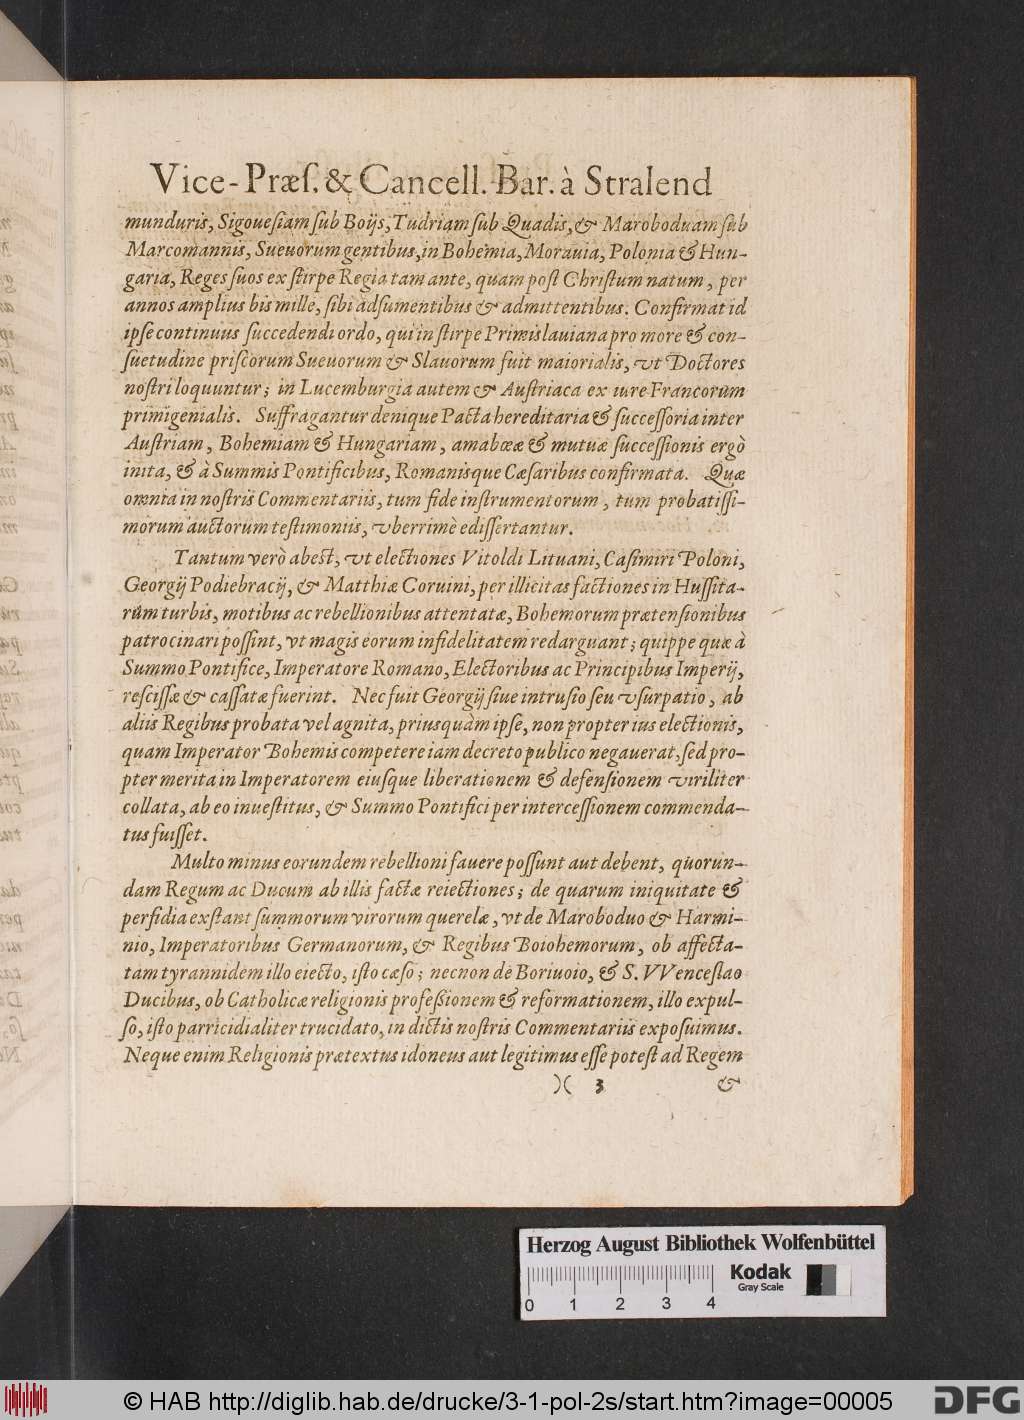 Vice-Præſ. & Cancell. Bar. à Stralend
munduris, Sigoueſiam ſub Boijs, Tudriam ſub Quadis, & Maroboduam ſub
Marcomannis, Sueuorum gentibus, in Bohemia, Morauia, Polonia & Hun-
garia, Reges ſuos ex ſtirpe Regia tam ante, quam poſt Chriſtum natum, per
annos amplius bis mille, ſibi adſumentibus & admittentibus. Confirmat id
ipſe continuus ſuccedendi ordo, qui in ſtirpe Primislauiana pro more & con-
ſuetudine priſcorum Sueuorum & Slauorum fuit maiorialis, vt Doctores
noſtri loquuntur; in Lucemburgia autem & Auſtriaca ex iure Francorum
primigenialis. Suffragantur denique Pacta hereditaria & ſucceſſoria inter
Auſtriam, Bohemiam & Hungariam, amabææ & mutuæ ſucceſſionis ergò
inita, & à Summis Pontificibus, Romanisque Cæſaribus confirmata. Quæ
omnia in noſtris Commentariis, tum fide inſtrumentorum, tum probatiſſi-
morum auctorum teſtimoniis, vberrimè ediſſertantur.
Tantum verò abest, vt electiones Vitoldi Lituani, Caſimiri Poloni,
Georgij Podiebracij, & Matthiæ Coruini, per illicitas factiones in Huſſita-
rum turbis, motibus ac rebellionibus attentatæ, Bohemorum prætenſionibus
patrocinari poſſint, vt magis eorum infidelitatem redarguant; quippe quæ à
Summo Pontifice, Imperatore Romano, Electoribus ac Principibus Imperij,
reſciſſæ & caſſatæ fuerint. Nec fuit Georgij ſiue intruſio ſeu vſurpatio, ab
aliis Regibus probata vel agnita, priusquàm ipſe, non propter ius electionis,
quam Imperator Bohemis competere iam decreto publico negauerat, ſed pro-
pter merita in Imperatorem eiusque liberationem & defenſionem viriliter
collata, ab eo inueſtitus, & Summo Pontifici per interceſſionem commenda-
tus fuiſſet.
Multo minus eorundem rebellioni fauere poſſunt aut debent, quorun-
dam Regum ac Ducum ab illis factæ reiectiones; de quarum iniquitate &
perfidia exſtant ſummorum virorum querelæ, vt de Maroboduo & Harmi-
nio, Imperatoribus Germanorum, & Regibus Boiohemorum, ob affecta-
tam tyrannidem illo eiecto, iſto cæſo; necnon de Boriuoio, & S. VVenceslao
Ducibus, ob Catholicæ religionis profeſsionem & reformationem, illo expul-
ſo, iſto parricidialiter trucidato, in dictis noſtris Commentariis expoſuimus.
Neque enim Religionis prætextus idoneus aut legitimus eſſe poteſt ad Regem
)( 3 &
Herzog August Bibliothek Wolfenbüttel
Kodak
Gray Scale
0 1 2 3 4
© HAB http://diglib.hab.de/drucke/3-1-pol-2s/start.htm?image=00005
DFG